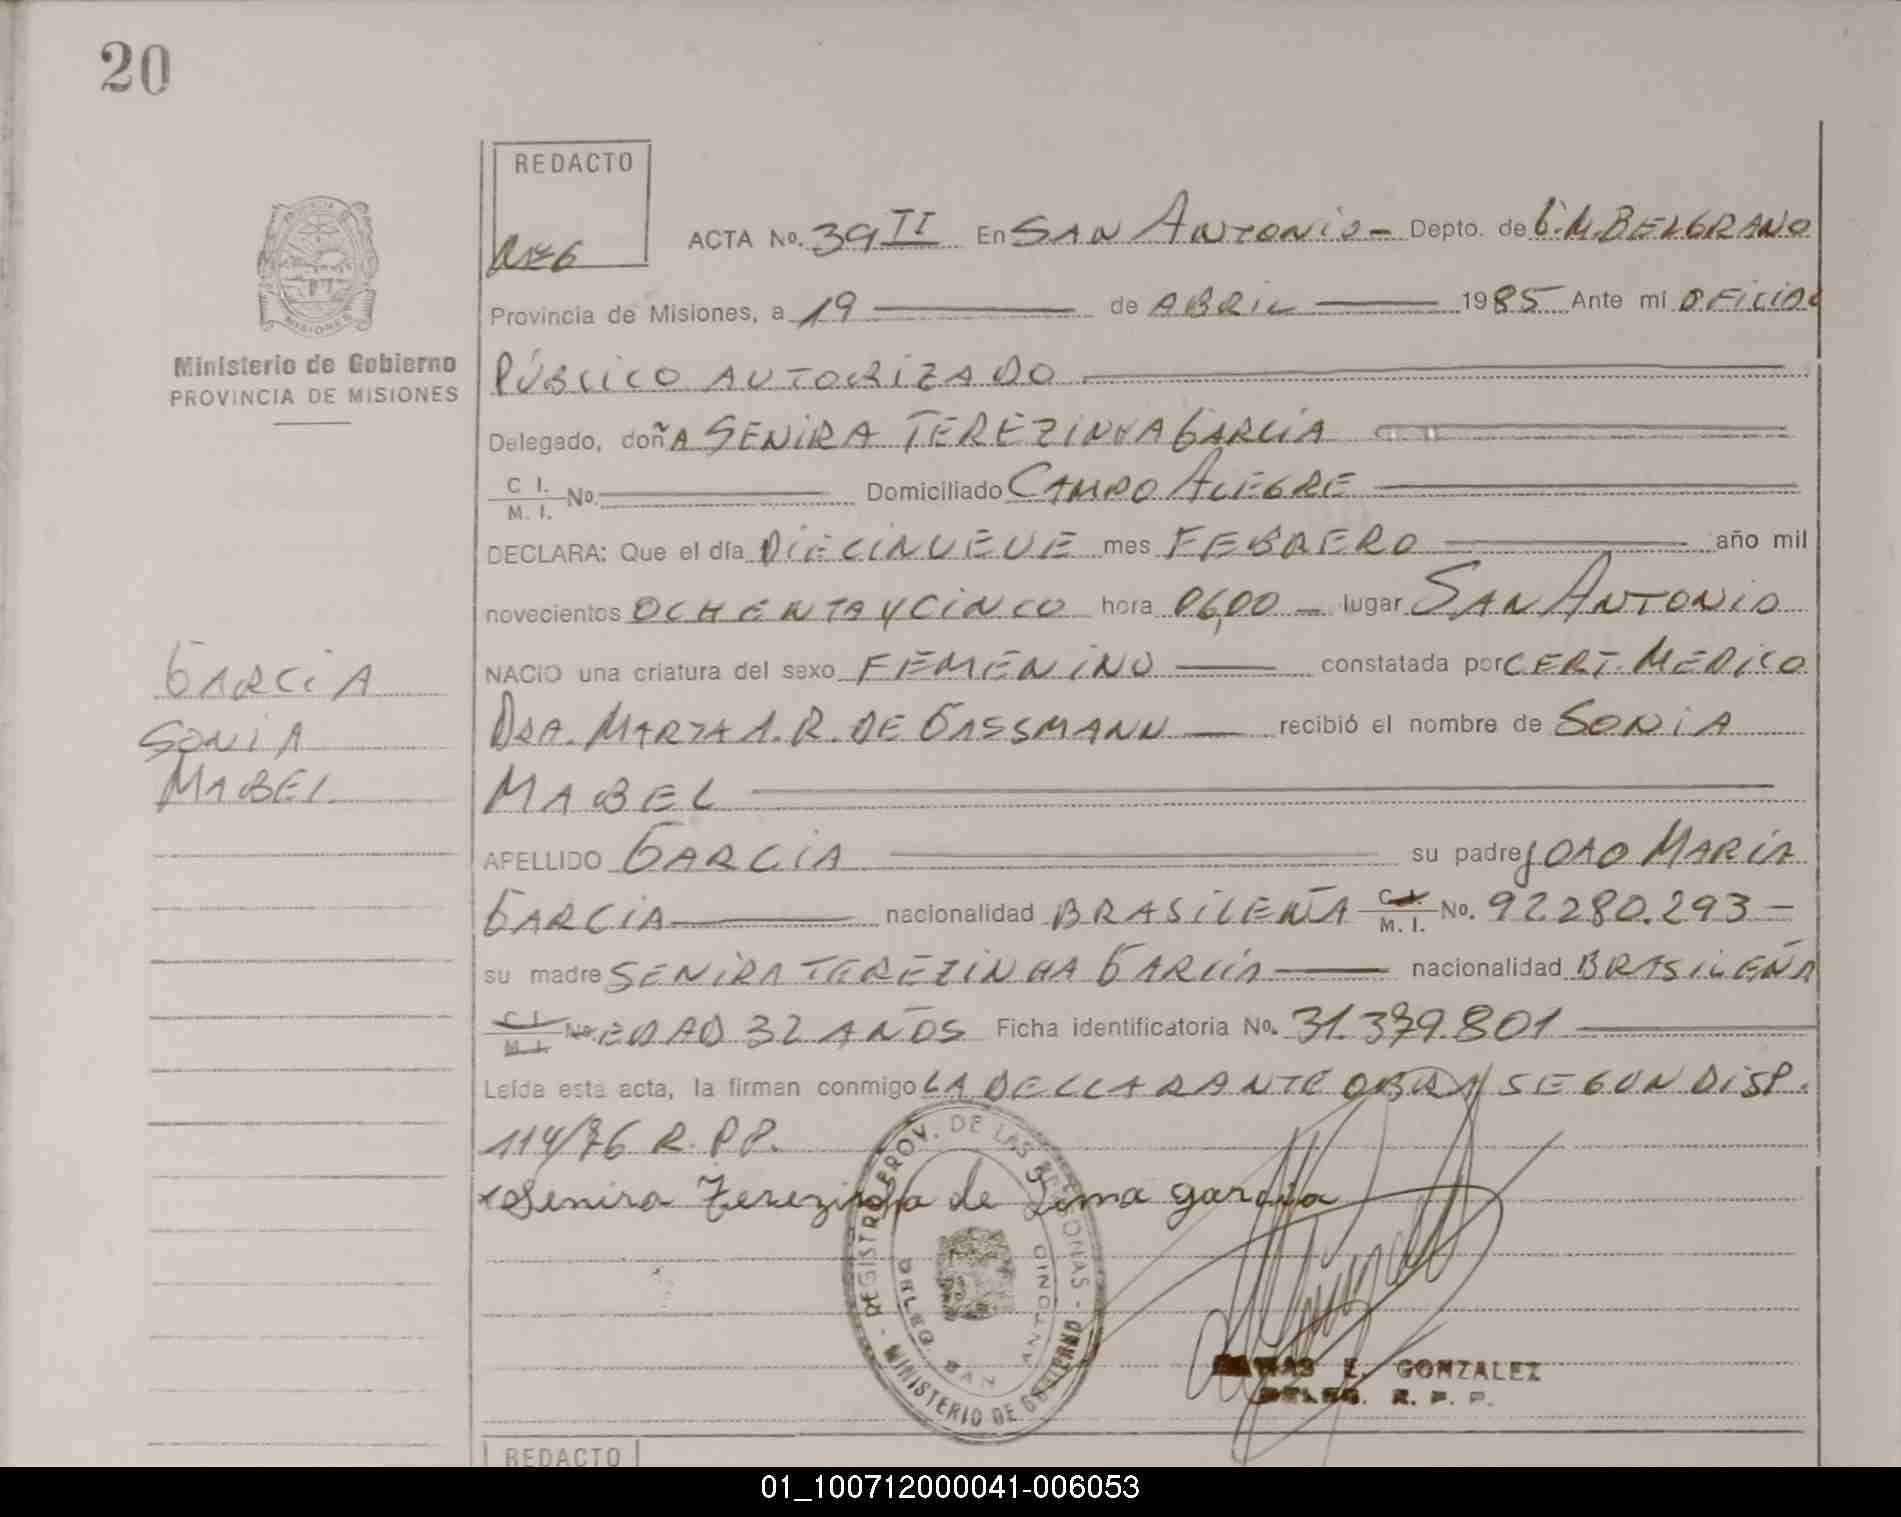 20
REDACTO
ACTA No. 39 TI En SAN ANTONIO - Depto. de G.M. BELGRANO
Provincia de Misiones, a 19 de ABRIL 1985 Ante mi OFICIAL
PÚBLICO AUTORIZADO
Ministerio de Gobierno
PROVINCIA DE MISIONES
MISIONES
Delegado, doñA SENIRA TEREZINHA GARCIA
C. I. / M. I. No. Domiciliado CAMPO ALEGRE
DECLARA: Que el día DIECINUEVE mes FEBRERO año mil
novecientos OCHENTA Y CINCO hora 06,00 - lugar SAN ANTONIO
NACIO una criatura del sexo FEMENINO constatada por CERT. MEDICO
DRA. MARTA A. R. DE GASSMANN recibió el nombre de SONIA
MABEL
GARCIA
SONIA
MABEL
APELLIDO GARCIA su padre JOAO MARIA
GARCIA nacionalidad BRASILEÑA C. I. / M. I. No. 92.280.293 -
su madre SENIRA TEREZINHA GARCIA nacionalidad BRASILEÑA
C. I. / M. I. No. EDAD 32 AÑOS Ficha identificatoria No. 31.379.801
Leída esta acta, la firman conmigo LA DECLARANTE OBRA SEGUN DISP.
114/76 R.P.P.
Senira Terezinha de Lima garcia
REGISTRO PROV. DE LAS PERSONAS - MINISTERIO DE GOBIERNO -
DELEG. SAN ANTONIO
E. GONZALEZ
DELEG. R. P. P.
REDACTO
01_100712000041-006053